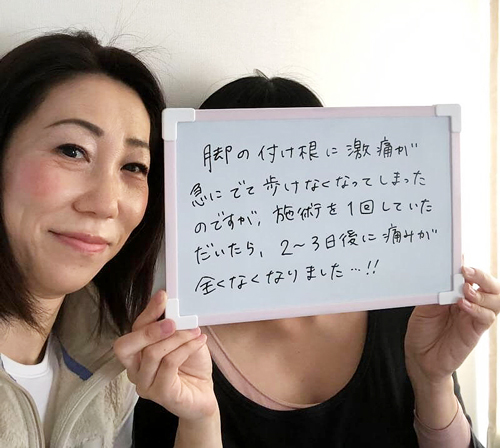 脚の付け根に激痛が
急にでて歩けなくなってしまった
のですが、施術を1回していた
だいたら、2〜3日後に痛みが
全くなくなりました…!!